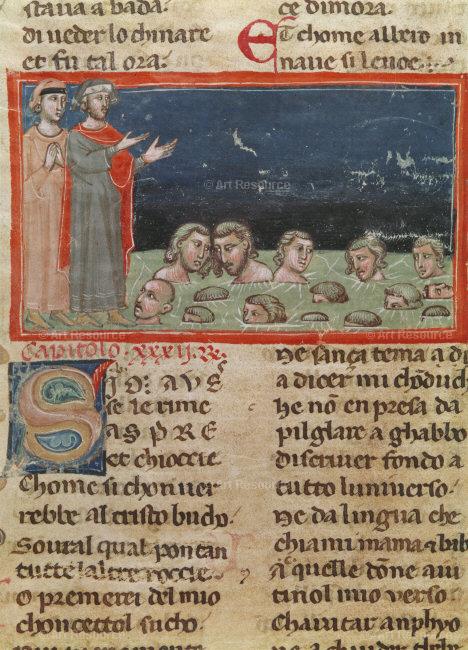 staua a bada
di ueder lo chinare
et fu tal ora.
ce dimora.
Et chome albero in
naue si leuoe.
© Art Resource
Capitolo .xxxii.
SIO: AVS
se le rime
ASPRE
et chioccie
Chome si chonuer
rebbe al tristo bucho.
Soural qual pontan
tutte laltre roccie
O premerei del mio
choncettol sucho.
Ne sança tema a di
a dicer mi choduch
he nō en presa da
pilglare a ghabbo
discriuer fondo a
tutto luniuerso.
Ne da lingua che
chiami mama e bab
quelle dōne aiu
tinol mio uerso
Chaiutar anphyo